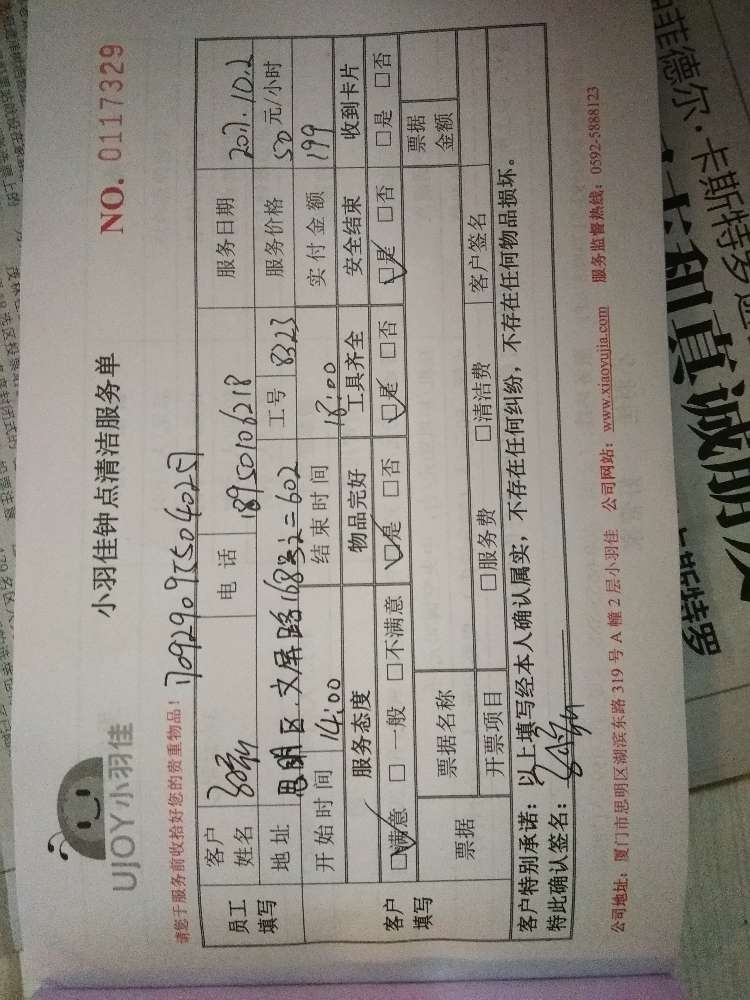 UJOY小羽佳
小羽佳钟点清洁服务单
NO. 0117329
请您于服务前收拾好您的贵重物品!
170929095504025
员工填写
客户姓名
电话 18950106218
服务日期 2017.10.2
地址 思明区.文屏路168号之二602
工号 8323
服务价格 50元/小时
开始时间 14:00
结束时间 18:00
实付金额 199
客户填写
服务态度 物品完好 工具齐全 安全结束 收到卡片
☑满意 □一般 □不满意 ☑是 □否 ☑是 □否 ☑是 □否 □是 □否
票据
票据名称
票据金额
开票项目 □服务费 □清洁费 客户签名
客户特别承诺:以上填写经本人确认属实,不存在任何纠纷,不存在任何物品损坏。
特此确认签名:
公司地址:厦门市思明区湖滨东路319号A幢2层小羽佳 公司网站:www.xiaoyujia.com 服务监督热线:0592-5888123
菲德尔·卡斯特罗
和真诚朋友
卡斯特罗